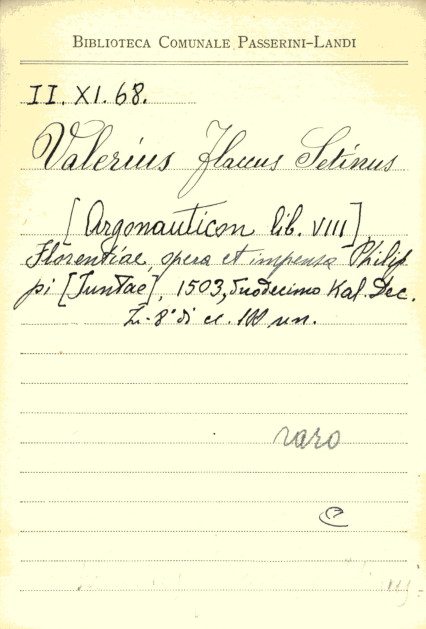 BIBLIOTECA COMUNALE PASSERINI-LANDI
II. XI. 68.
Valerius Flaccus Setinus
[Argonauticon lib. VIII]
Florentiae, opera et impensa Philip
pi [Juntae], 1503, duodecimo Kal. Dec.
in-8° di cc. 100 nn.
raro